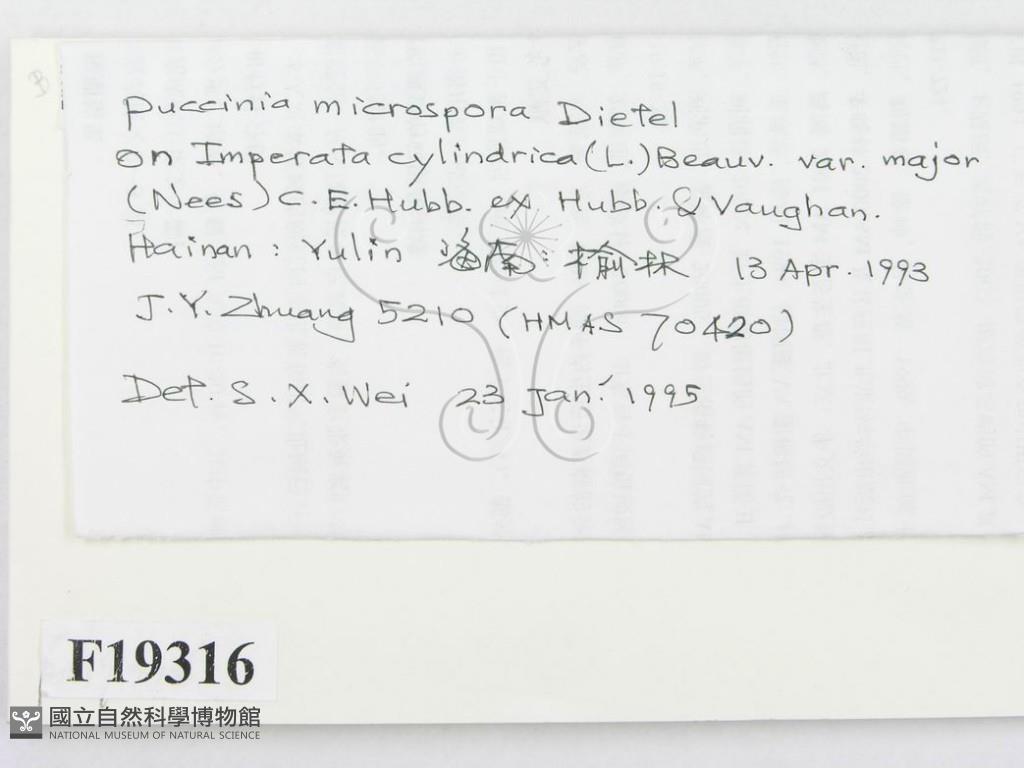 Puccinia microspora Dietel
on Imperata cylindrica (L.) Beauv. var. major
(Nees) C.E. Hubb. ex Hubb. & Vaughan.
Hainan : Yulin 海南: 榆林 13 Apr. 1993
J.Y. Zhuang 5210 (HMAS 70420)
Det. S.X. Wei 23 Jan. 1995
F19316
國立自然科學博物館
NATIONAL MUSEUM OF NATURAL SCIENCE